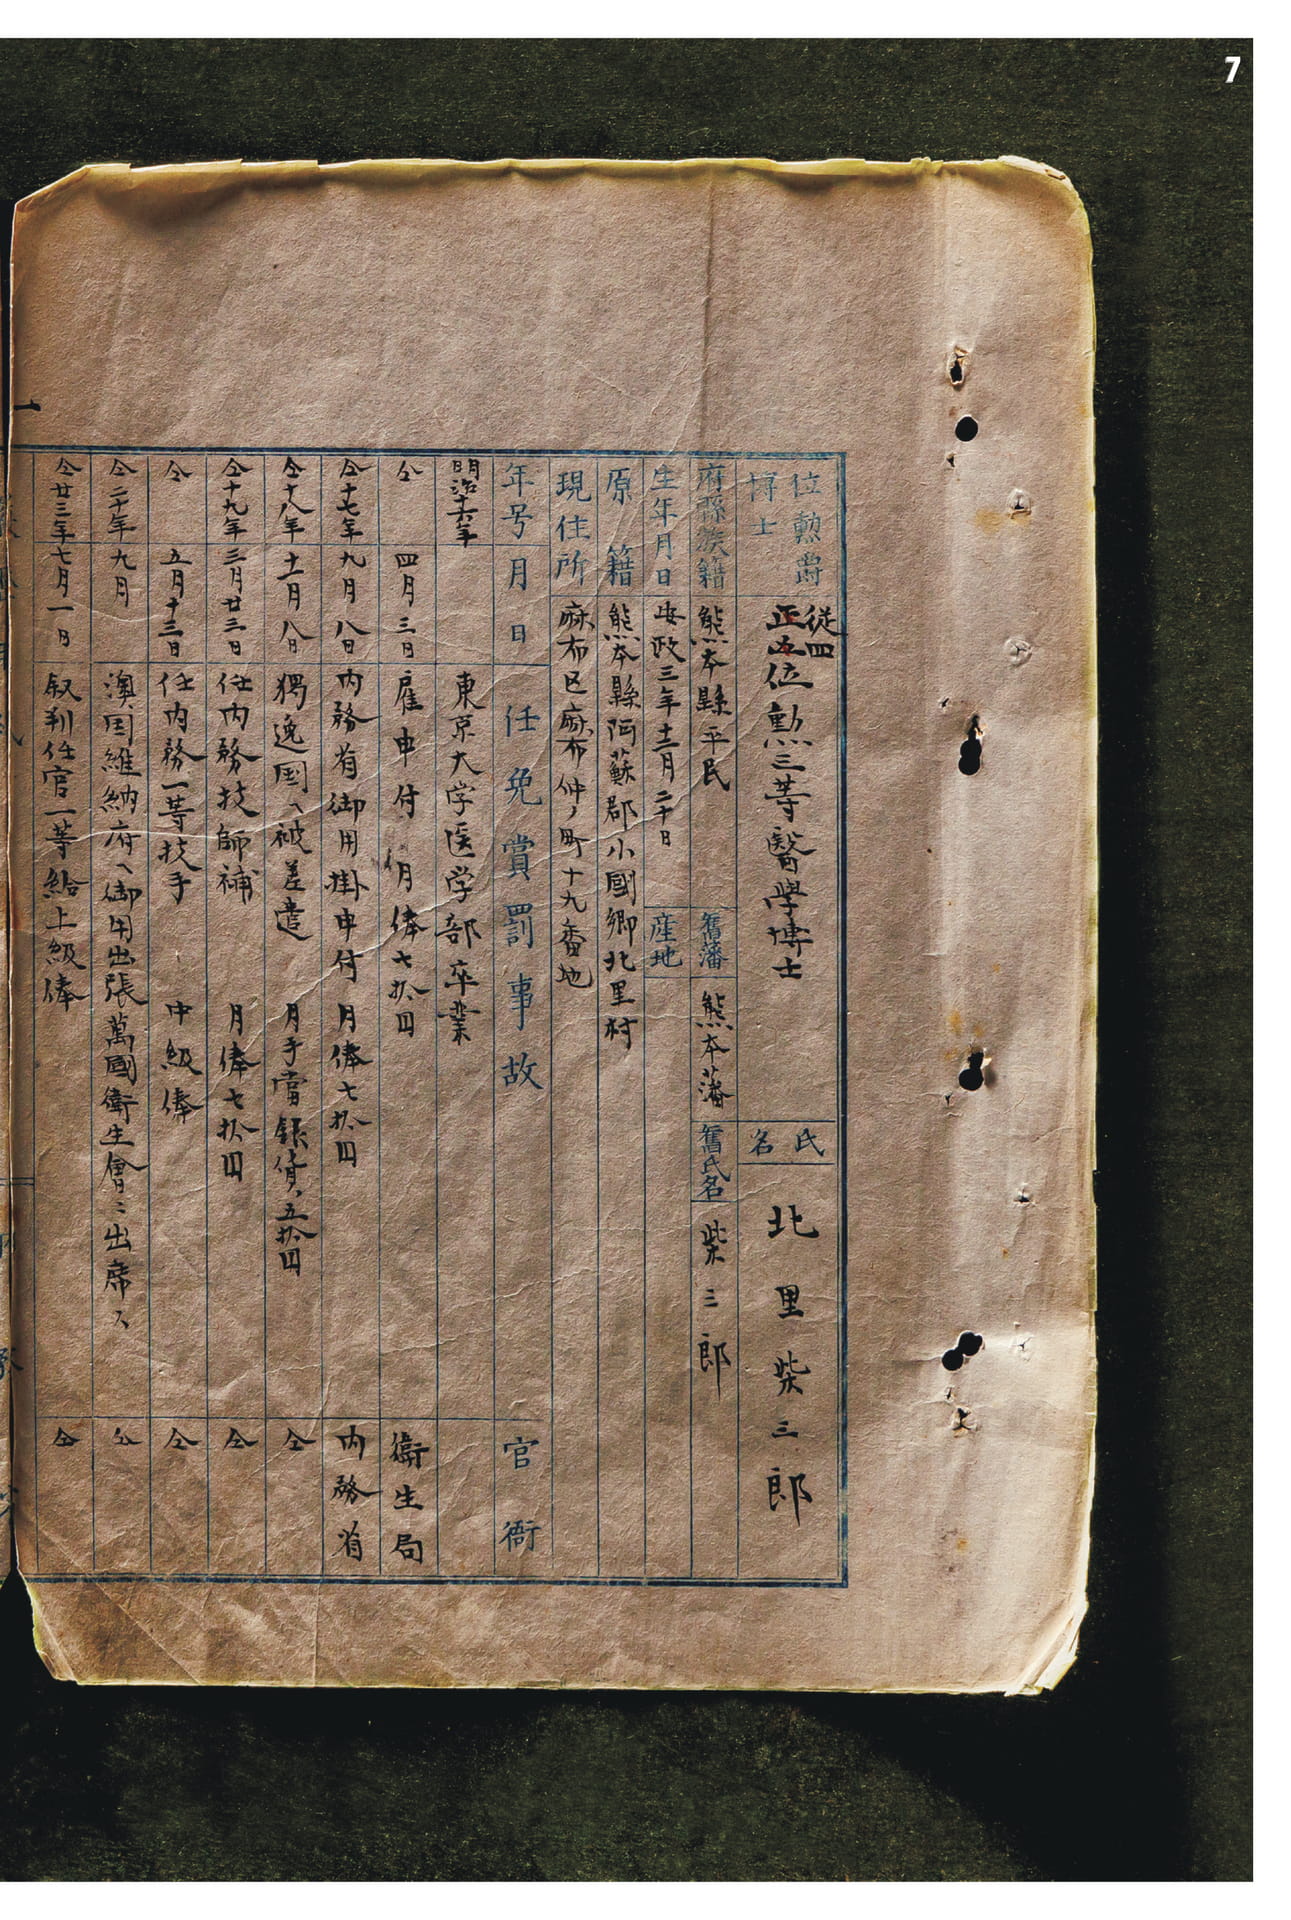 7
位勲爵
博士
従四
正五位勲三等醫學博士
氏名
北里柴三郎
府縣族籍
熊本縣平民
舊藩
熊本藩
舊氏名
柴三郎
生年月日
安政三年十二月二十日
産地
原籍
熊本縣阿蘇郡小國郷北里村
現住所
麻布区麻布仲ノ町十九番地
年号月日
任免賞罰事故
官衙
明治十六年
東京大学医学部卒業
仝
四月三日
雇申付 月俸七拾円
衛生局
仝十七年
九月八日
内務省御用掛申付 月俸七拾円
内務省
仝十八年
十一月八日
獨逸国ヘ被差遣 月手當銀貨五拾円
仝
仝十九年
三月廿三日
任内務技師補 月俸七拾円
仝
仝
五月十三日
任内務一等技手 中級俸
仝
仝二十年
九月
澳国維納府ヘ御用出張萬國衛生會ニ出席ス
仝
仝廿三年
七月一日
叙判任官一等給上級俸
仝
一